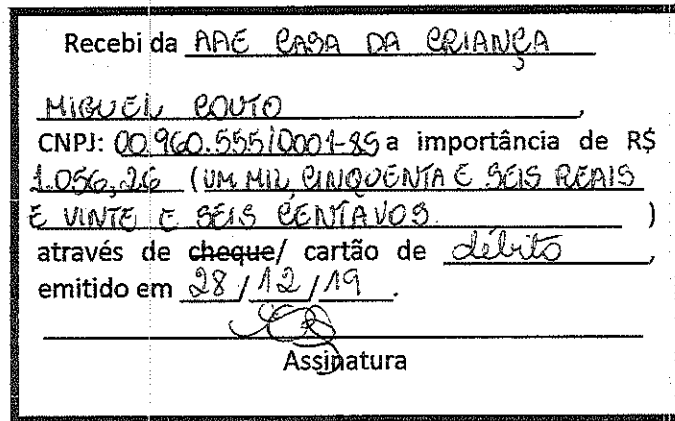 Recebi da AAE CASA DA CRIANÇA
MIGUEL COUTO,
CNPJ: 00.960.555/0001-85 a importância de R$
1.056,26 (UM MIL CINQUENTA E SEIS REAIS
E VINTE E SEIS CENTAVOS. )
através de cheque/ cartão de débito,
emitido em 28/12/19.
Assinatura